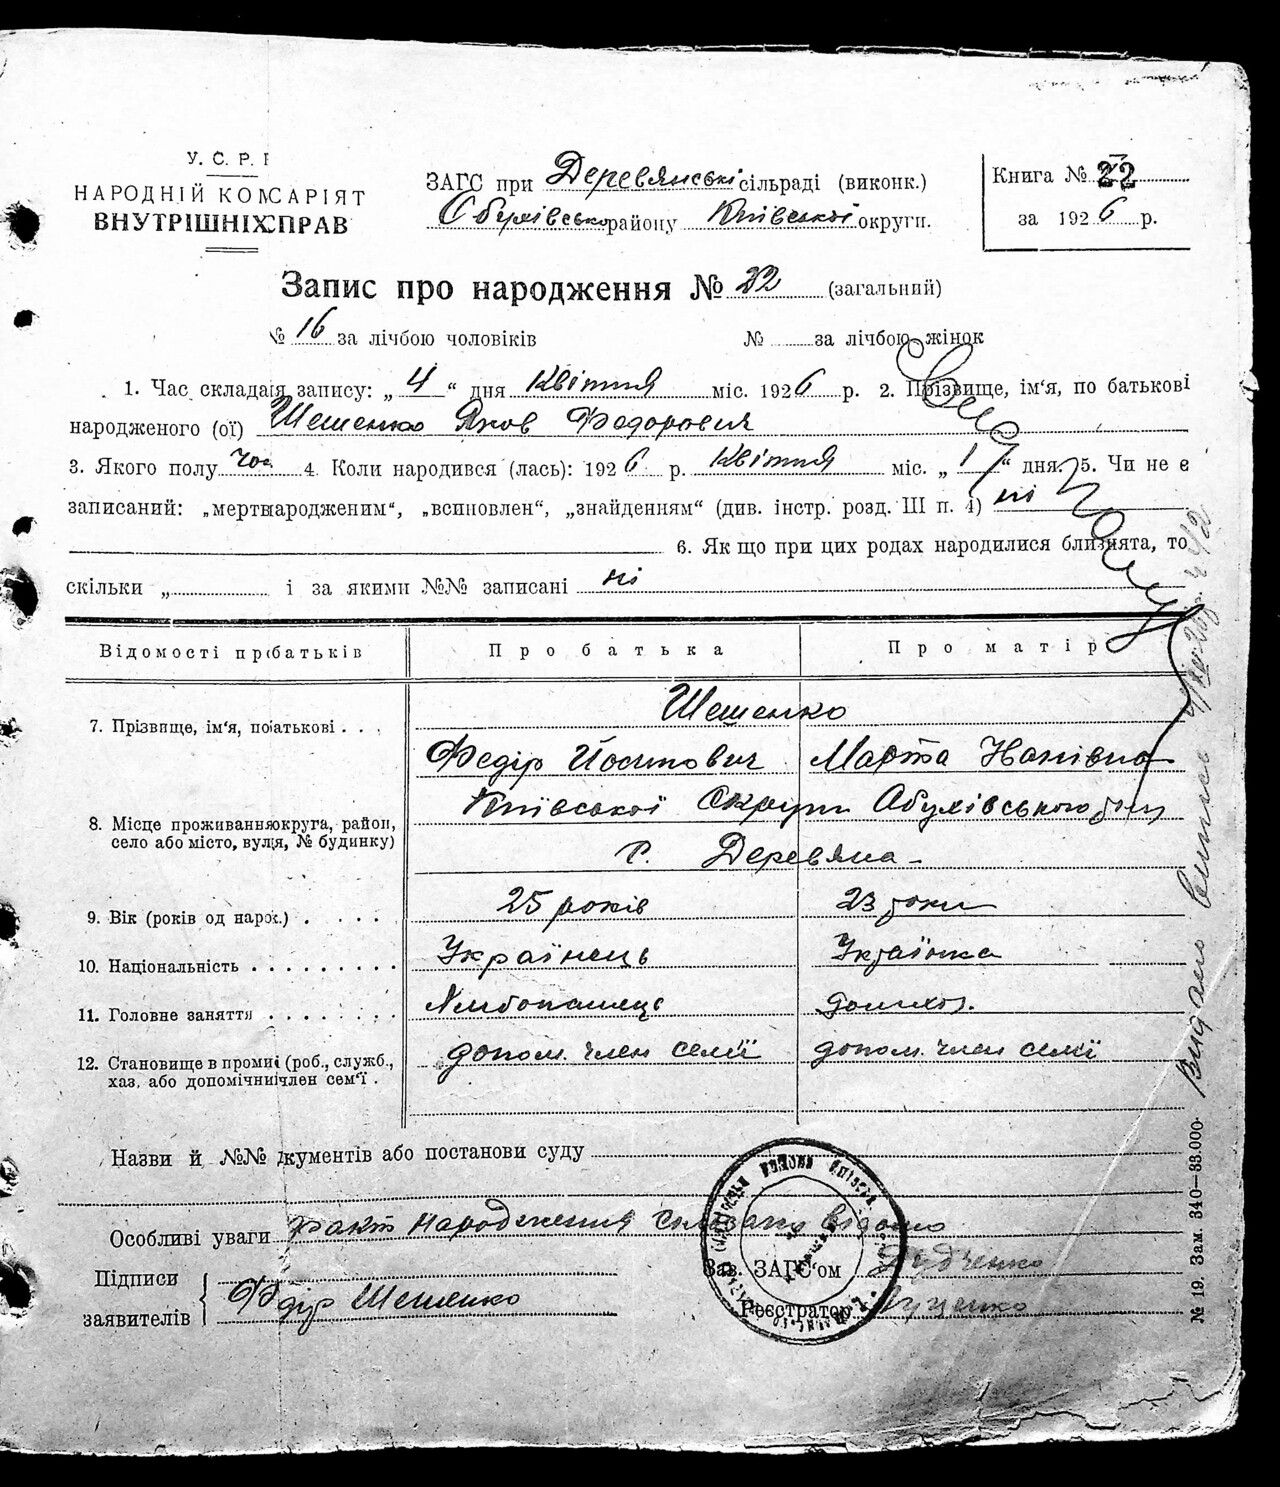 У. С. Р. Р
НАРОДНІЙ КОМІСАРІЯТ
ВНУТРІШНІХ СПРАВ
ЗАГС при Деревянські сільраді (виконк.)
Обухівсько району Київської округи.
Книга № 22
за 1926 р.
Запис про народження № 22 (загальний)
№ 16 за лічбою чоловіків № за лічбою жінок
1. Час складан я запису: „4“ дня Квітня міс. 1926 р. 2. Прізвище, ім'я, по батькові
народженого (ої) Шешенко Яков Федорович
3. Якого полу чол 4. Коли народився (лась): 1926 р. Квітня міс. „1“ дня. 5. Чи не є
записаний: „мертвнародженим“, „всиновлен“, „знайденням“ (див. інстр. розд. III п. 4) ні
6. Як що при цих родах народилися близнята, то
скільки „ і за якими №№ записані ні
Відомості пр батьків Про батька Про матір
Шешенко
7. Прізвище, ім'я, по атькові . . .
Федір Йосипович Марта
Київської Округи Обухівського
8. Місце проживання округа, район,
село або місто, вул я, № будинку)
с. Деревяна
9. Вік (років од нарож.) . . . . . 25 років 23 роки
10. Національність . . . . . . . . . Українець Українка
11. Головне заняття . . . . . . . . Хлібопашець домихоз.
12. Становище в проми (роб., служб.,
хаз. або допомічни член сем'ї .
допом. член семії допом. член семії
Назви й №№ д кументів або постанови суду
Особливі уваги Факт народження відомо
Підписи
заявителів
Федір Шешенко
Зав. ЗАГС'ом Дудченко
Реєстратор Луценко
№ 19. Зам. 340—33.000.
Видано